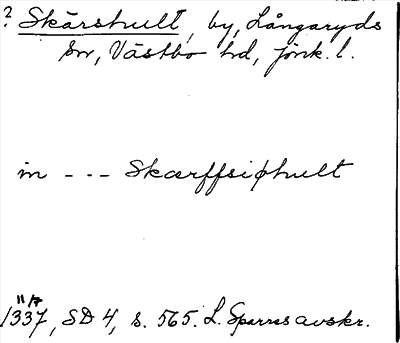 ? Skärshult, by, Långaryds
sn, Västbo hd, Jönk. l.
in - - - Skærffsiøhult
11/7
1337, SD 4, s. 565. L. Sparres avskr.